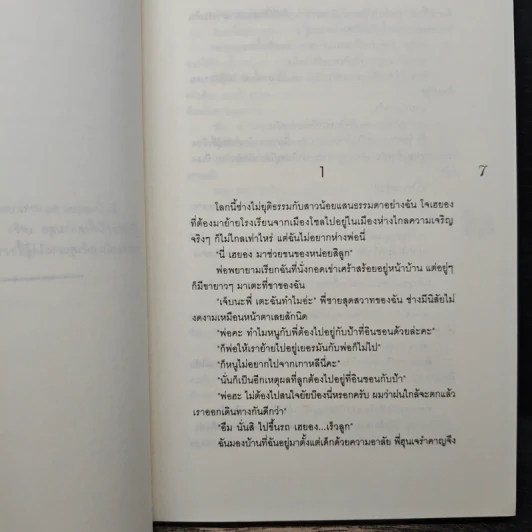 1
7
โลกนี้ช่างไม่ยุติธรรมกับสาวน้อยแสนธรรมดาอย่างฉัน โจเฮยอง
ที่ต้องมาย้ายโรงเรียนจากเมืองโซลไปอยู่ในเมืองห่างไกลความเจริญ
จริงๆ ก็ไม่ไกลเท่าไหร่ แต่ฉันไม่อยากห่างพ่อนี่
"นี่ เฮยอง มาช่วยขนของหน่อยสิลูก"
พ่อพยายามเรียกฉันที่นั่งกอดเข่าเศร้าสร้อยอยู่หน้าบ้าน แต่อยู่ๆ
ก็มีขายาวๆ มาเตะที่ขาของฉัน
"เจ็บนะพี่ เตะฉันทำไมอ่ะ" พี่ชายสุดสวาทของฉัน ช่างมีนิสัยไม่
งดงามเหมือนหน้าตาเลยสักนิด
"พ่อคะ ทำไมหนูกับพี่ต้องไปอยู่กับป้าที่อินชอนด้วยล่ะคะ"
"ก็พ่อให้เราย้ายไปอยู่เยอรมันกับพ่อก็ไม่ไป"
"ก็หนูไม่อยากไปจากเกาหลีนี่คะ"
"นั่นก็เป็นอีกเหตุผลที่ลูกต้องไปอยู่ที่อินชอนกับป้า"
"พ่อฮะ ไม่ต้องไปสนใจยัยบ๊องนี่หรอกครับ ผมว่าฝนใกล้จะตกแล้ว
เราออกเดินทางกันดีกว่า"
"อืม นั่นสิ ไปขึ้นรถ เฮยอง...เร็วลูก"
ฉันมองบ้านที่ฉันอยู่มาตั้งแต่เด็กด้วยความอาลัย พี่ฮุนเจรำคาญจึง